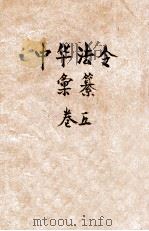 中华法令
彙纂
卷五
www.duxiu.com